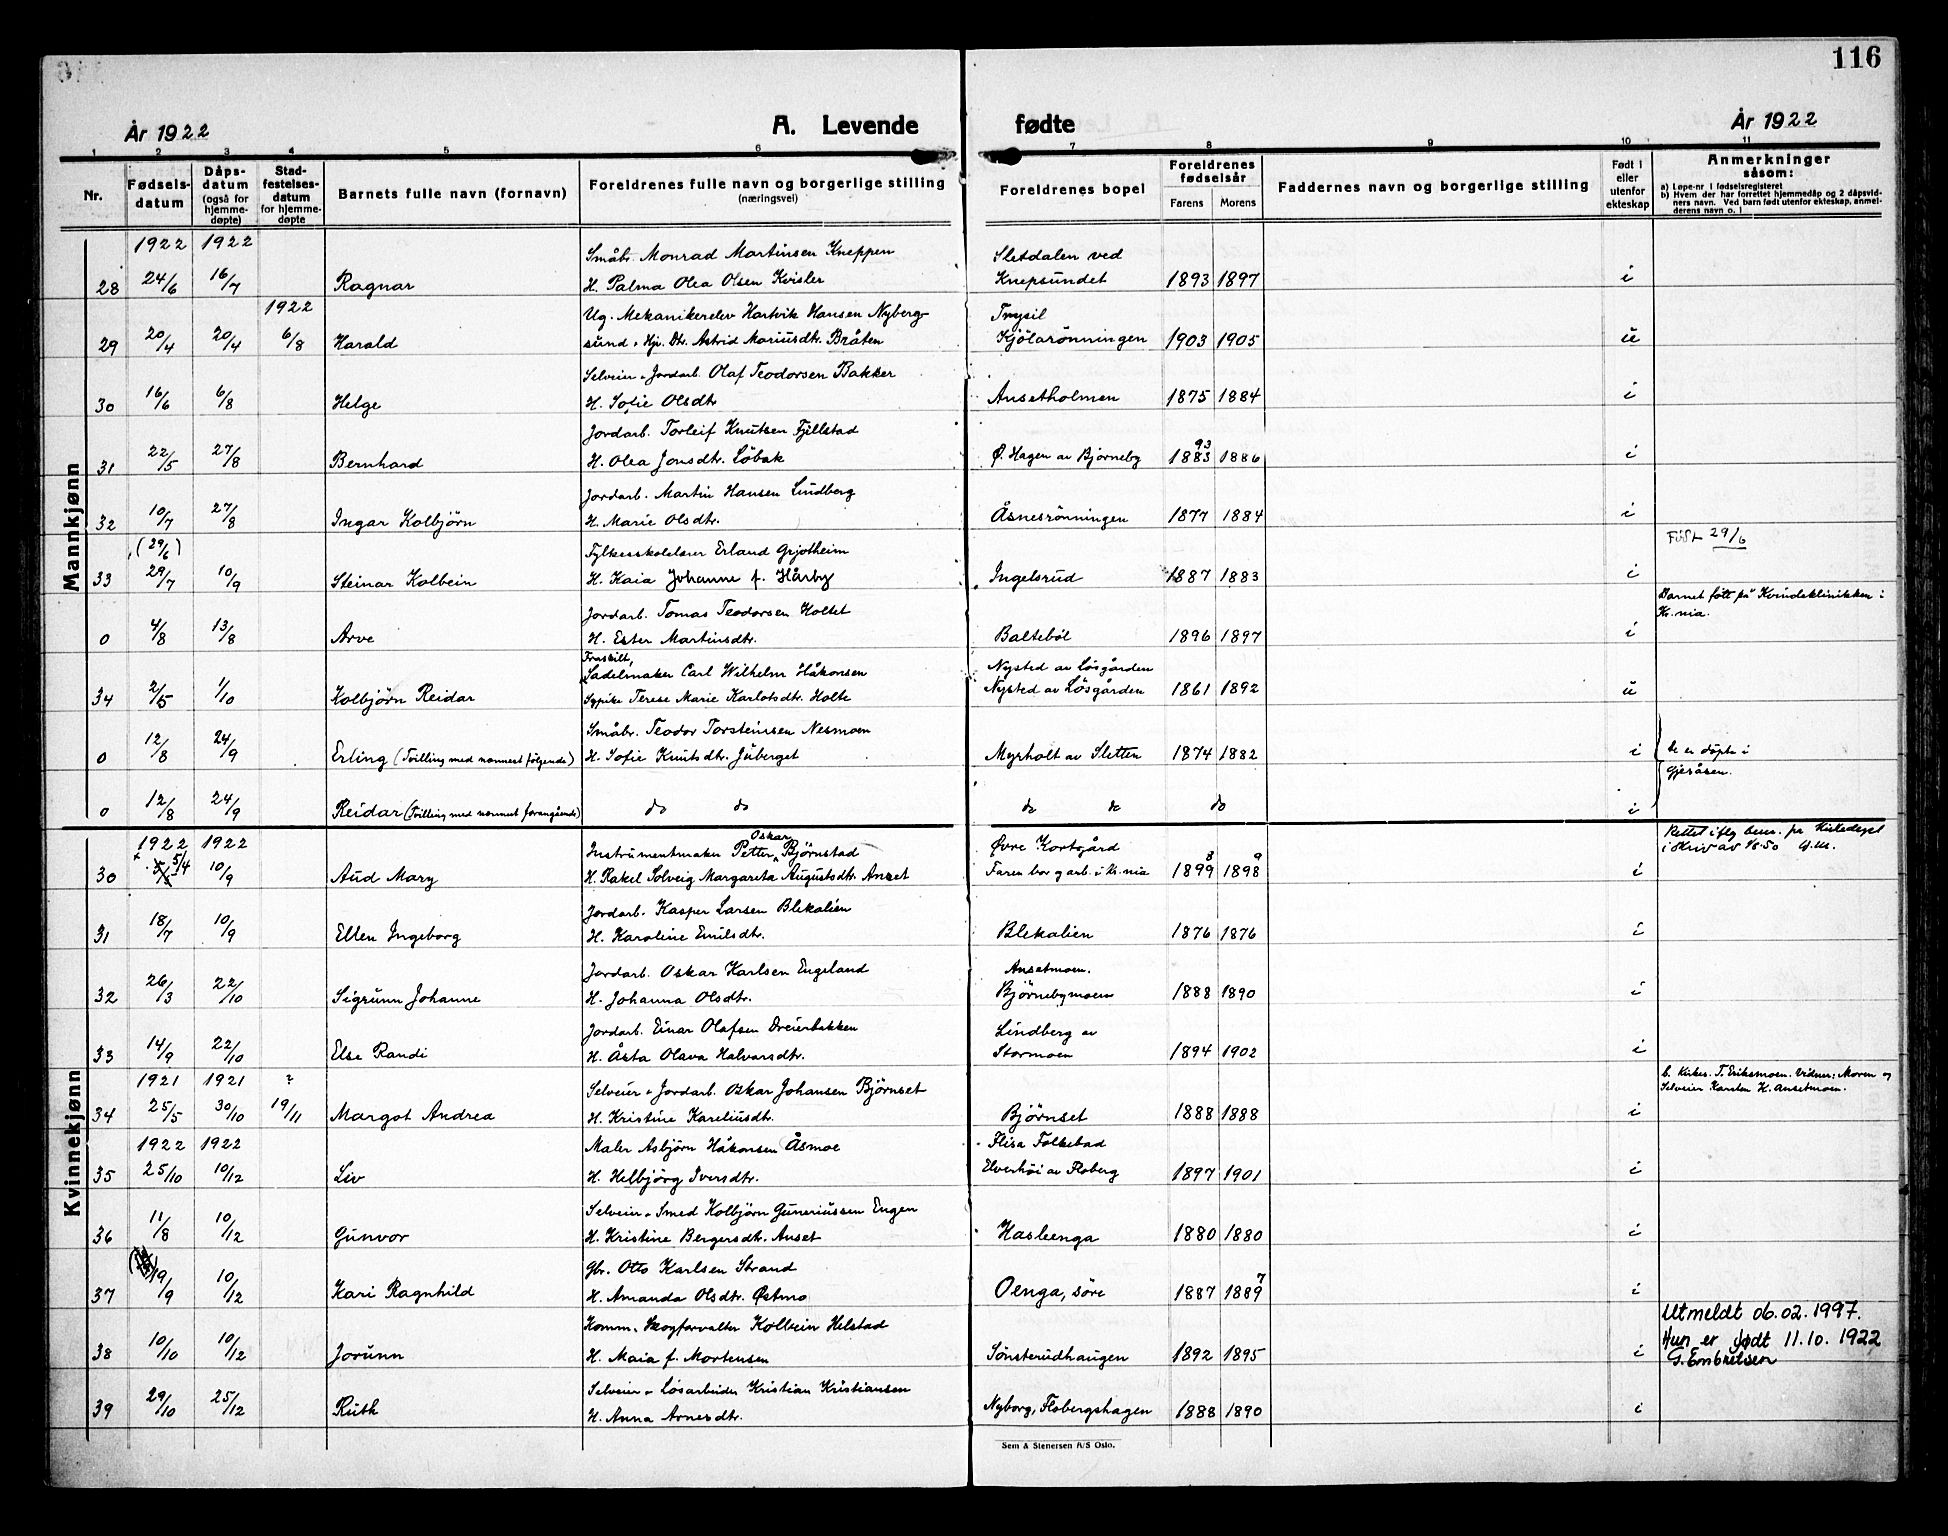 116
År 1922
A. Levende fødte
År 1922
1 2 3 4 5 6 7 8 9 10 11
Nr.
Fødsels-datum
Dåps-datum (også for hjemme-døpte)
Stad-festelses-datum for hjemme-døpte
Barnets fulle navn (fornavn)
Foreldrenes fulle navn og borgerlige stilling (næringsvei)
Foreldrenes bopel
Foreldrenes fødselsår
Farens Morens
Faddernes navn og borgerlige stilling
Født i eller utenfor ekteskap
Anmerkninger såsom:
a) Løpe-nr i fødselsregisteret
b) Hvem der har forrettet hjemmedåp og 2 dåpsvidners navn. Ved barn født utenfor ekteskap, anmelderens navn o. l
Mannkjønn
1922 1922 Småbr. Monrad Martinsen Kneppen Sletdalen ved
28 24/6 16/7 Ragnar H. Palma Olea Olsen Kvisler Knepsundet 1893 1897 i
1922 Ug. Mekanikerelev Hartvik Hansen Nyberg- Trysil
29 20/4 20/4 6/8 Harald sund - Hj. Dtr. Astrid Mariusdtr. Bråten Kjölarønningen 1903 1905 u
Selveier - Jordarb. Olaf Teodorsen Bakker
30 16/6 6/8 Helge H. Sofie Olsdtr Ansetholmen 1875 1884 i
Jordarb. Torleif Knutsen Fjellstad 93
31 22/5 27/8 Bernhard H. Olea Jonsdtr. Løbak Ø. Hagen av Bjørneby 1883 1886 i
Jordarb. Martin Hansen Lindberg
32 10/7 27/8 Ingar Kolbjörn H. Marie Olsdtr. Åsnesrønningen 1877 1884 i
(29/6) Fylkesskolelærer Erland Grjotheim Födt 29/6
33 29/7 10/9 Steinar Kolbein H. Kaia Johanne f. Hårby Ingelsrud 1887 1883 i
Jordarb. Tomas Teodorsen Holtet Barnet født på Kvindeklinikken i Kr.nia.
0 4/8 13/8 Arve H. Ester Martinsdtr. Baltebøl 1896 1897 i
Fraskilt,
Sadelmaker Carl Wilhelm Håkonsen Nysted av Løsgården
34 2/5 1/10 Kolbjørn Reidar Sypike Terese Marie Karlotsdtr. Holte Nysted av Løsgården 1861 1892 u
Småbr. Teodor Torsteinsen Nesmoen
0 12/8 24/9 Erling (Tvilling med nærmest følgende) H. Sofie Knutsdtr. Juberget Myrholt av Sletten 1874 1882 i De er døpte i Gjesåsen.
0 12/8 24/9 Reidar (Tvilling med nærmest forangående) do do do do do i
Kvinnekjønn
1922 1922 Instrumentmaker Petter Oskar Bjørnstad Øvre Kortgård 8 9 Rettet iflg
30 5/4 10/9 Aud Mary H. Rakel Solveig Margareta Augustsdtr. Anset Faren bor og arb. i Kr.nia 1899 1898 i
Jordarb. Kasper Larsen Blekalien
31 18/7 10/9 Ellen Ingeborg H. Karoline Emilsdtr. Blekalien 1876 1876 i
Jordarb. Oskar Karlsen Engeland Ansetmoen.
32 26/3 22/10 Sigrunn Johanne H. Johanna Olsdtr. Bjørnebymoen 1888 1890 i
Jordarb. Einar Olafsen Dreierbakken Lindberg av
33 14/9 22/10 Else Randi H. Åsta Olava Halvarsdtr. Stormoen 1894 1902 i
1921 1921 ? Selveier - Jordarb. Oskar Johansen Björnset b. Kirkes. T. Eriksmoen. Vidner: Moren og Selveier Karsten H. Ansetmoen.
34 25/5 30/10 19/11 Margot Andrea H. Kristine Kareliusdt. Björnset 1888 1888 i
1922 1922 Maler Asbjörn Håkonsen Åsmoe Flisa Folkebad
35 25/10 10/12 Liv H. Helbjörg Iversdtr. Elverhöi av Floberg 1897 1901 i
Selveier - Smed Kolbjörn Guneriussen Engen
36 11/8 10/12 Gunvor H. Kristine Bergersdtr. Anset Haslienga 1880 1880 i
Gbr. Otto Karlsen Strand 7
37 19/9 10/12 Kari Ragnhild H. Amanda Olsdtr. Østmo Oenga, søre 1887 1889 i
Komm. Skogforvalter Kolbein Helstad Utmeldt 06.02.1997.
38 10/10 10/12 Jorunn H. Maia f. Mortensen Sønsterudhaugen 1892 1895 i Hun er født 11.10.1922 G. Embretsen
Selveier - Løsarbeider Kristian Kristiansen
39 29/10 25/12 Ruth H. Anna Arnesdtr. Nyborg, Flobergshagen 1888 1890 i
Sem & Stenersen A/S Oslo.